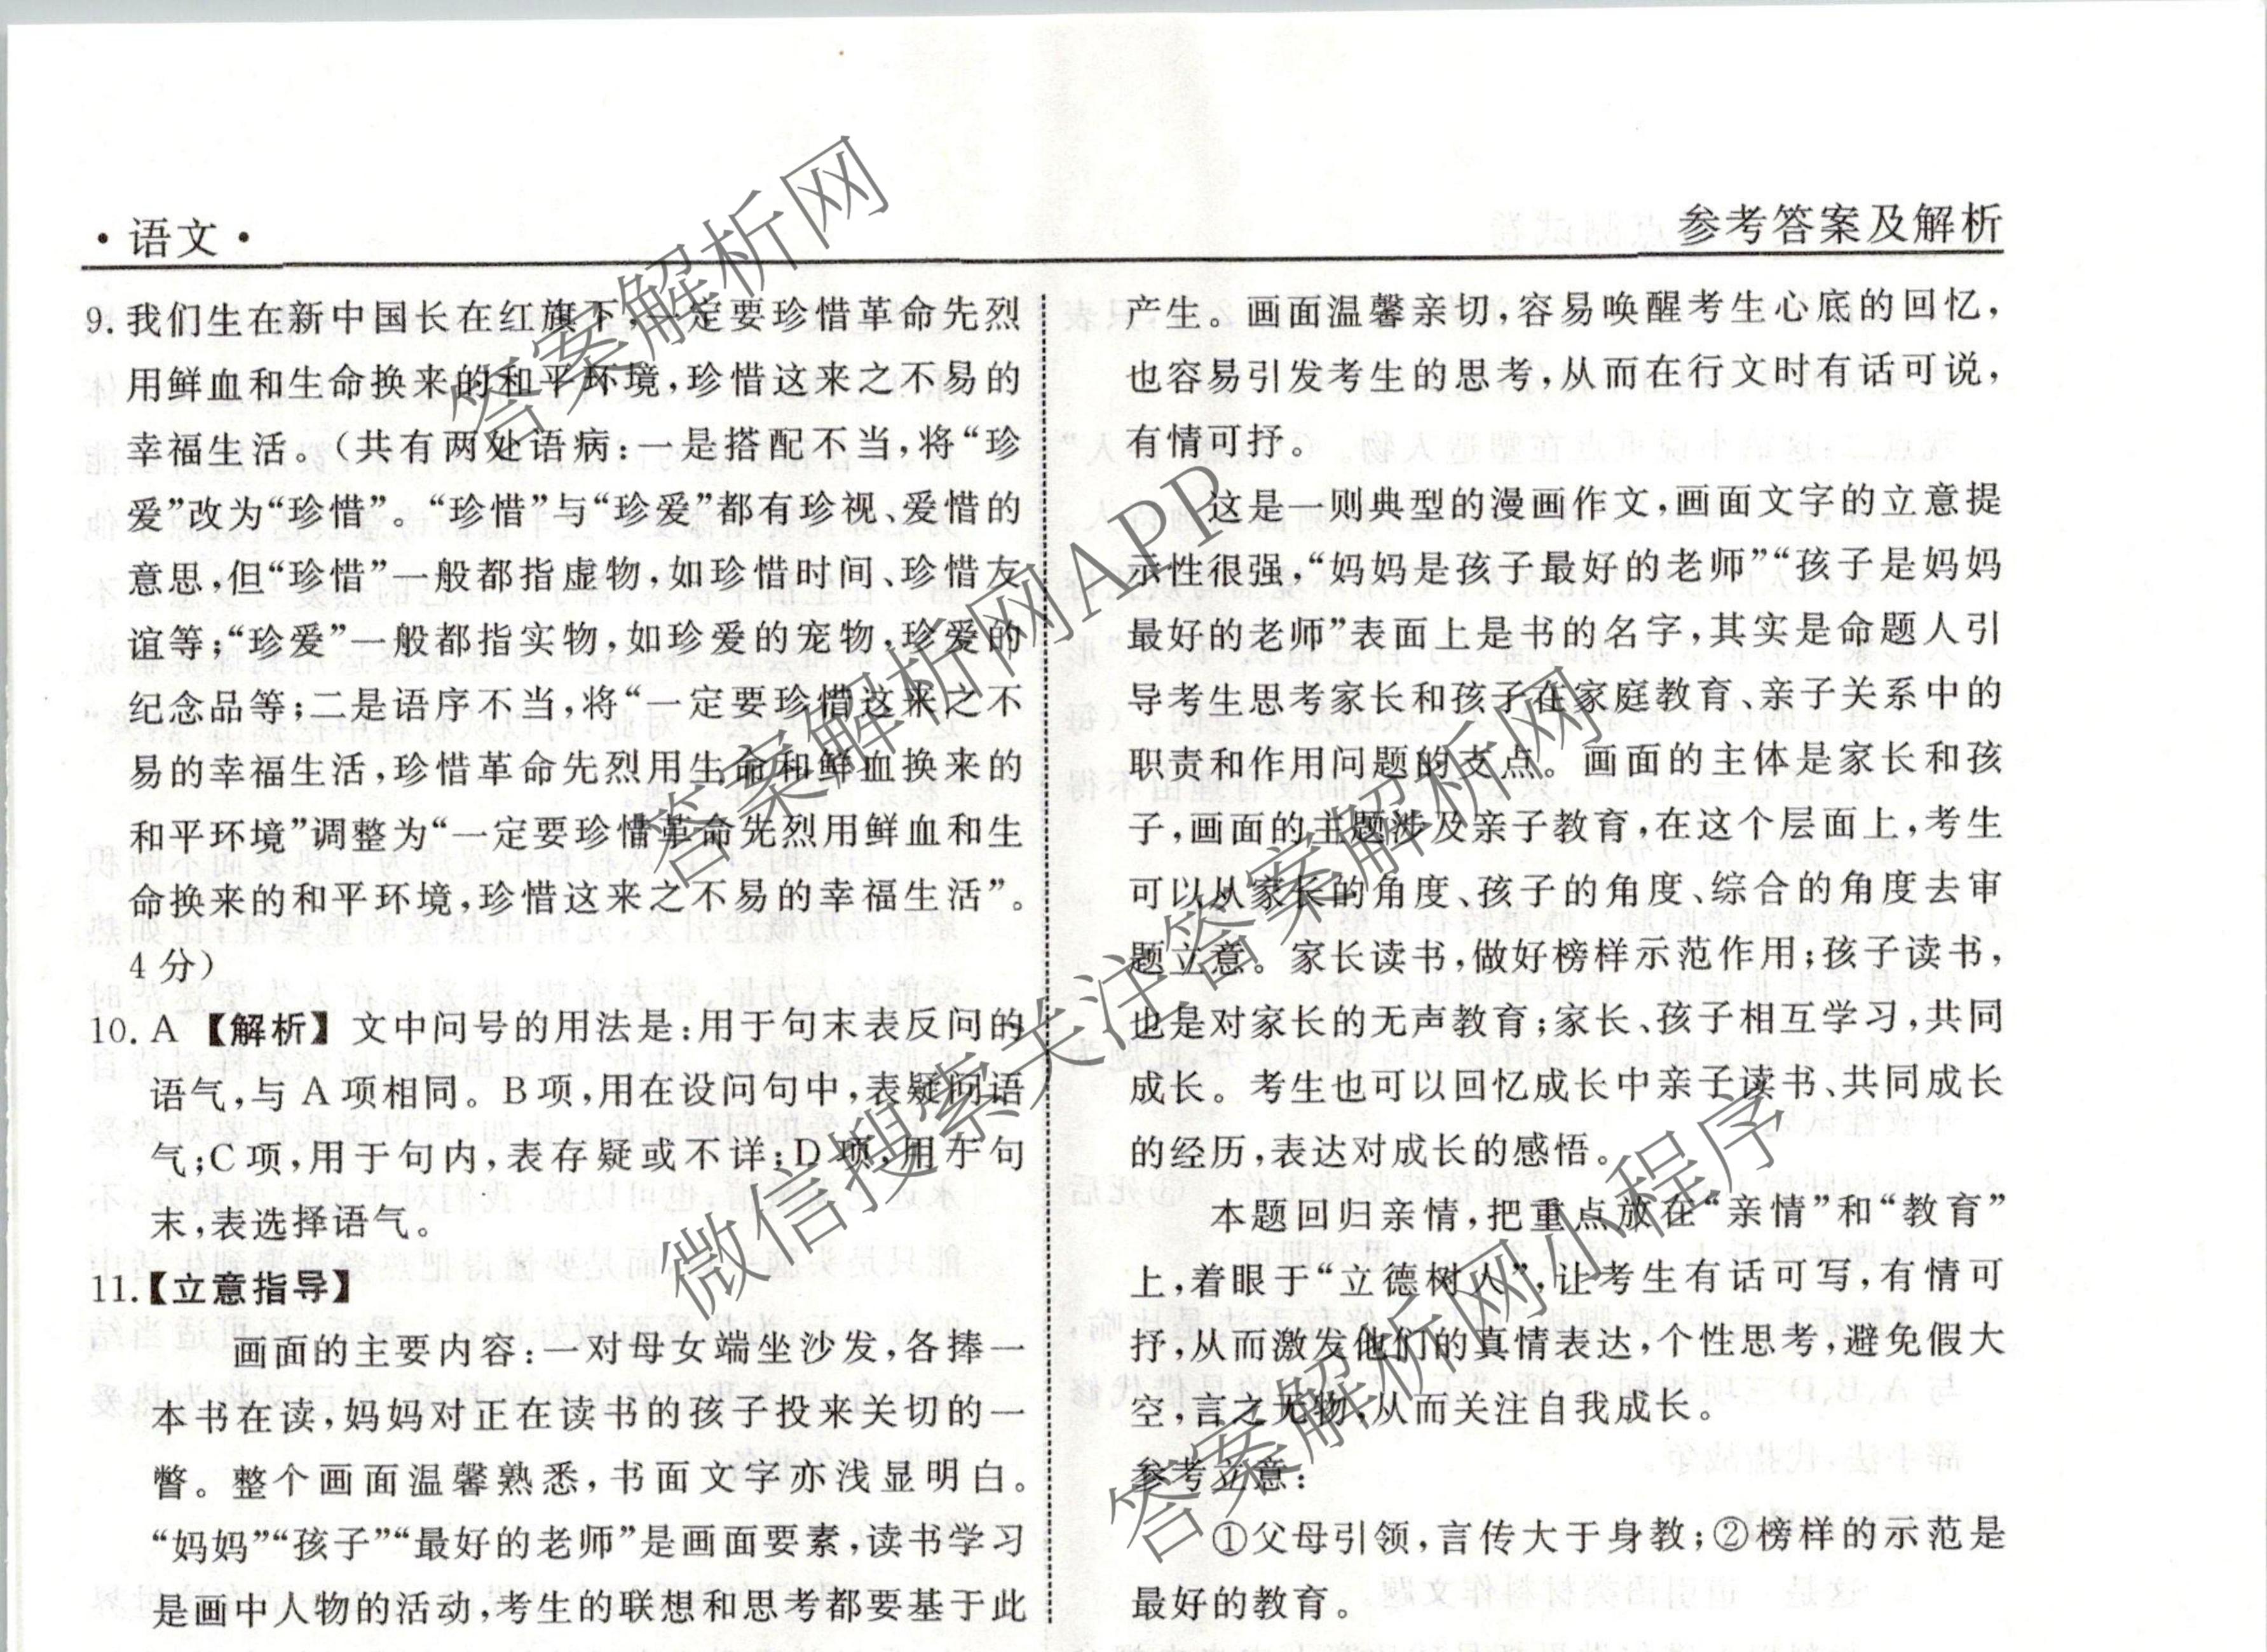 ·语文·
参考答案及解析
9. 我们生在新中国长在红旗下,一定要珍惜革命先烈
用鲜血和生命换来的和平环境,珍惜这来之不易的
幸福生活。(共有两处语病:一是搭配不当,将“珍
爱”改为“珍惜”。“珍惜”与“珍爱”都有珍视、爱惜的
意思,但“珍惜”一般都指虚物,如珍惜时间、珍惜友
谊等;“珍爱”一般都指实物,如珍爱的宠物,珍爱的
纪念品等;二是语序不当,将“一定要珍惜这来之不
易的幸福生活,珍惜革命先烈用生命和鲜血换来的
和平环境”调整为“一定要珍惜革命先烈用鲜血和生
命换来的和平环境,珍惜这来之不易的幸福生活”。
4分)
10. A 【解析】文中问号的用法是:用于句末表反问的
语气,与A项相同。B项,用在设问句中,表疑问语
气;C项,用于句内,表存疑或不详;D项,用于句
末,表选择语气。
11.【立意指导】
画面的主要内容:一对母女端坐沙发,各捧一
本书在读,妈妈对正在读书的孩子投来关切的一
瞥。整个画面温馨熟悉,书面文字亦浅显明白。
“妈妈”“孩子”“最好的老师”是画面要素,读书学习
是画中人物的活动,考生的联想和思考都要基于此
产生。画面温馨亲切,容易唤醒考生心底的回忆,
也容易引发考生的思考,从而在行文时有话可说,
有情可抒。
这是一则典型的漫画作文,画面文字的立意提
示性很强,“妈妈是孩子最好的老师”“孩子是妈妈
最好的老师”表面上是书的名字,其实是命题人引
导考生思考家长和孩子在家庭教育、亲子关系中的
职责和作用问题的支点。画面的主体是家长和孩
子,画面的主题涉及亲子教育,在这个层面上,考生
可以从家长的角度、孩子的角度、综合的角度去审
题立意。家长读书,做好榜样示范作用;孩子读书,
也是对家长的无声教育;家长、孩子相互学习,共同
成长。考生也可以回忆成长中亲子读书、共同成长
的经历,表达对成长的感悟。
本题回归亲情,把重点放在“亲情”和“教育”
上,着眼于“立德树人”,让考生有话可写,有情可
抒,从而激发他们的真情表达,个性思考,避免假大
空,言之无物,从而关注自我成长。
参考立意:
①父母引领,言传大于身教;②榜样的示范是
最好的教育。
答案解析网
答案解析网APP
微信搜索关注答案解析网
答案解析网小程序